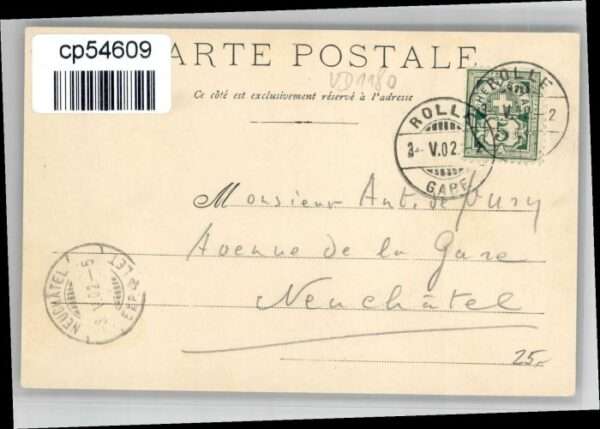 cp54609
CARTE POSTALE
VD1180
Ce côté est exclusivement réservé à l'adresse
ROLLE
V.02
GARE
ROLLE
V
2
5
Monsieur Ant. de Pury
Avenue de la Gare
Neuchâtel
NEUCHÂTEL
V.02-5
25.-